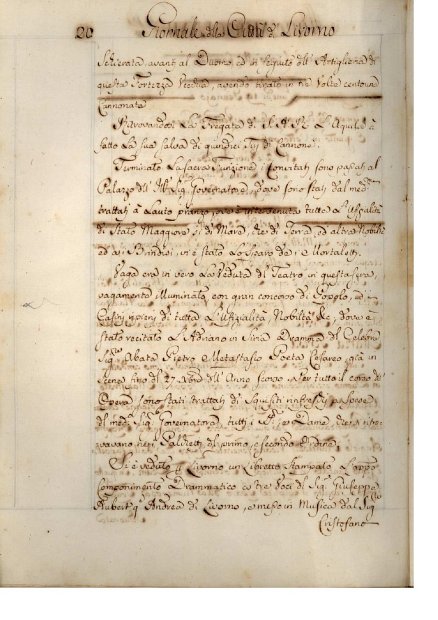 20 Giornale della Città di Livorno
Schierata avanti al Duomo, ed in seguito dell' Artiglieria di
questa Fortezza Vecchia, avendo tirato in tre volte cento una
Cannonata
Ritrovandosi La Fregata di S. A. R. L'Aquila à
fatto La sua salva di quindici Tiri di Cannone.
Terminata La sacra Funzione i Convitati sono passati al
Palazzo dell' Sig. Governatore, dove sono stati dal med.
trattati à Lauto pranzo, ove è intervenuta tutta L'Ufizialità
di Stato Maggiore sì di Mare, che di Terra, ed altra Nobiltà
ed a' Brindisi, vi è stato Lo sparo de' Mortaletti.
Vaga era in vero La Veduta del Teatro in questa sera,
vagamente illuminato, con gran concorso di Popolo, e
ripieni di tutta L'Ufizialità Nobiltà &c, dove è
stato recitato L'Adriano in Siria Dramma del Celebre
Sig. Abate Pietro Metastasio Poeta Cesareo, già in
Scena fino del 27. Nov. dell' Anno scorso, e per tutto il corso dell'
Opera sono stati trattati di Squisiti rinfreschi per parte
del med. Sig. Governatore tutti i e Dame, che si ritro-
vavano nei Palchetti del primo, e secondo Ordine.
Si è veduto in Livorno un Libretto stampato
Componimento Drammatico a tre voci del Sig. Giuseppe
Aubert q. Andrea di Livorno, e messo in Musica dal Sig.
Cristofano